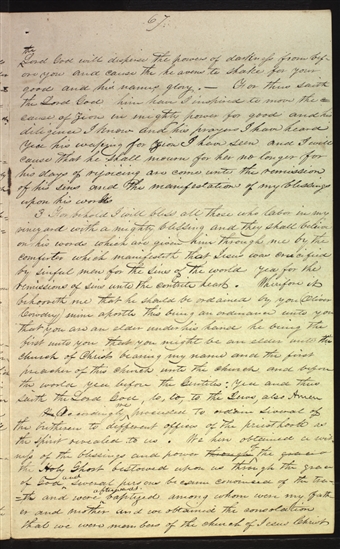 67.
the
Lord God will disperse the power of darkness from bef-
ore you and cause the heavens to shake for your
good and his names glory. — For thus saith
the Lord God him have I inspired to move the c
ause of Zion in mighty power for good and his
diligence I know and his prayers I have heard
Yea his weeping for Zion I have seen and I will
cause that he shall mourn for her no longer for
his days of rejoicing are come unto the remission
of his sins and the manifestation of my blessings
upon his works
3 For behold I will bless all those who labor in my
vineyard with a mighty blessing and they shall believe
on his words which are given him through me by the
comforter which manifesteth that Jesus was crucified
by sinful men for the sins of the world yea for the
remissions of sins unto the contrite heart. Wherefore it
behooveth me that he should be ordained by you Oliver
Cowdry mine apostle this being an ordinance unto you
that you are an elder under his hand he being the
first unto you that you might be an elder unto this
church of Christ bearing my name and the first
preacher of this church unto the church and before
the world yea before the Gentiles; Yea and thus
saith the Lord God, lo, lo, to the Jews, also Amen
4 Accordingly proceeded to ordain several of
the brethren to different offices of the priesthood as
the spirit revealed to us. We
of the blessings and power through the grace of
the Holy Ghost bestowed upon us through the grace
of God and several persons became convinced of the tru-
th and were afterwards baptized among whom were my fath-
er and mother and we obtained the consolation
that we were members of the church of Jesus Christ